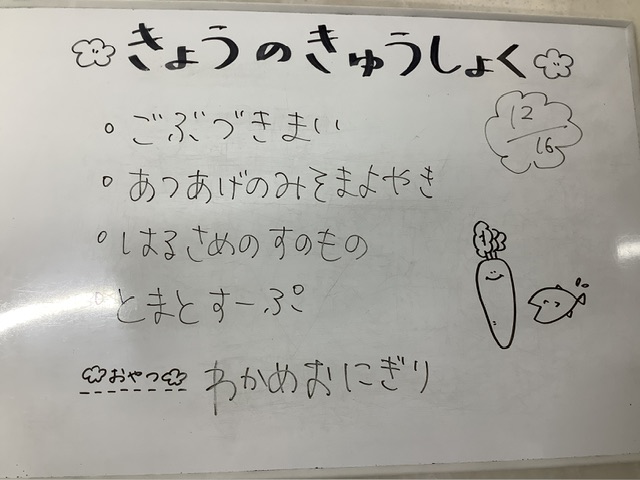 きょうのきゅうしょく
12/16
。ごぶづきまい
。あつあげのみそまよやき
。はるさめのすのもの
。とまとすーぷ
おやつ わかめおにぎり